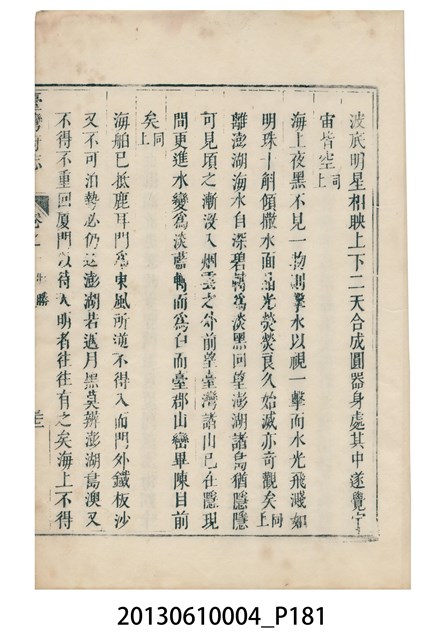 波底明星相映上下二天合成圓器身處其中遂覺宇
宙皆空同上
海上夜黑不見一物則擊水以視一擊而水光飛濺如
明珠十斛傾撒水面晶光熒熒良久始滅亦奇觀矣同上
離澎湖海水自深碧轉為淡黑回望澎湖諸島猶隱隱
可見頃之漸沒入烟雲之外前望臺灣諸山已在隱現
間更進水變為淡藍轉而為白而臺郡山巒畢陳目前
矣同上
海舶已抵鹿耳門為東風所逆不得入而門外鐵板沙
又不可泊勢必仍返澎湖若遇月黑莫辨澎湖島澳又
不得不重回厦門以待天明者往往有之矣海上不得
臺灣府志
卷之一
形勝
20130610004_P181